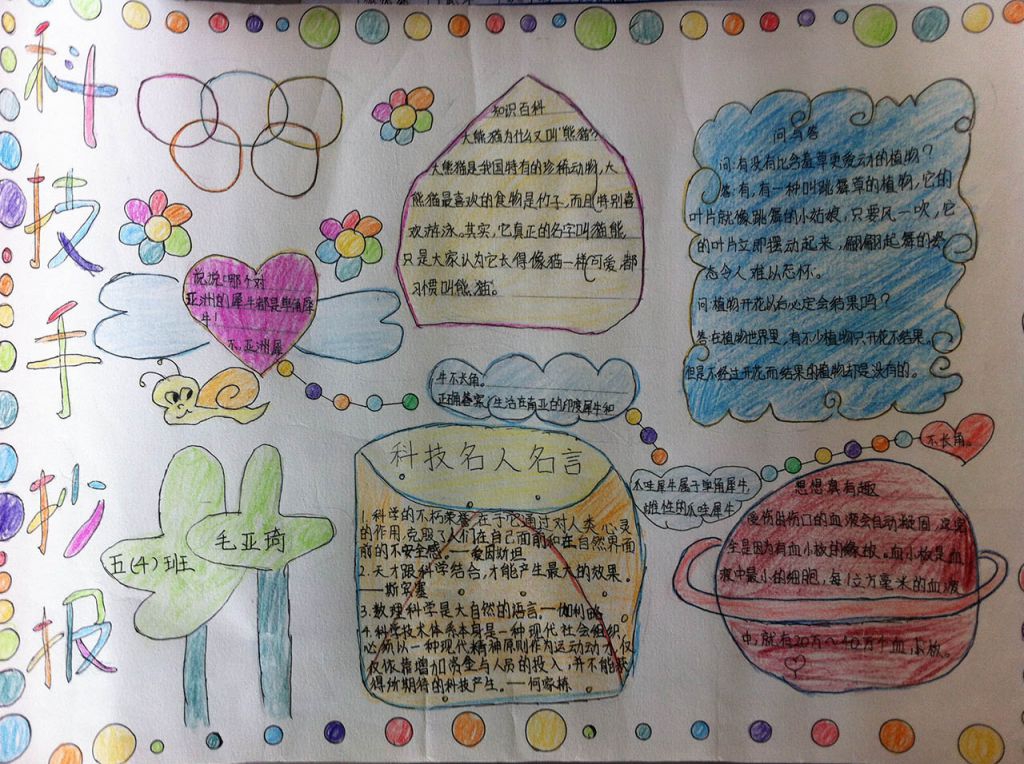 科技手抄报
知识百科
大熊猫为什么又叫"熊猫"?
大熊猫是我国特有的珍稀动物,大
熊猫最喜欢的食物是竹子,而且特别喜
欢游泳。其实,它真正的名字叫猫熊,
只是大家认为它长得像猫一样可爱,都
习惯叫熊猫。
问与答
问:有没有比含羞草更爱动的植物?
答:有,有一种叫跳舞草的植物,它的
叶片就像跳舞的小姑娘,只要风一吹,它
的叶片立即摆动起来,翩翩起舞的姿
态令人难以忘怀。
问:植物开花以后必定会结果吗?
答:在植物世界里,有不少植物只开花不结果。
但是不经过开花而结果的植物却是没有的。
说说:哪个对
亚洲的犀牛都是单角犀
牛!
不,亚洲犀
牛不长角。
正确答案:生活在南亚的印度犀牛和
爪哇犀牛属于单角犀牛,
雌性的爪哇犀牛
不长角。
五(4)班
毛亚琦
科技名人名言
1.科学的不朽荣誉,在于它通过对人类心灵
的作用,克服了人们在自己面前和在自然界面
前的不安全感。——爱因斯坦
2.天才跟科学结合,才能产生最大的效果。
——斯宾塞
3.数理科学是大自然的语言。——伽利略
4.科学技术体系本身是一种现代社会组织,
必须以一种现代精神原则作为运动动力,仅
仅依靠增加资金与人员的投入,并不能获
得所期待的科技产生。——何家栋
思想真有趣
受伤出伤口的血液会自动凝固,这
生是因为有血小板的缘故。血小板是血
液中最小的细胞,每1立方毫米的血液
中,就有20万~40万个血小板。